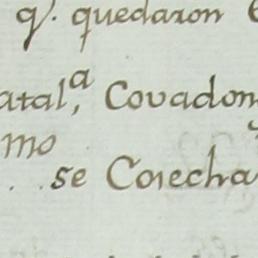 qᵉ. quedaron
atal,ª Covadon
mo
. . se Corecha